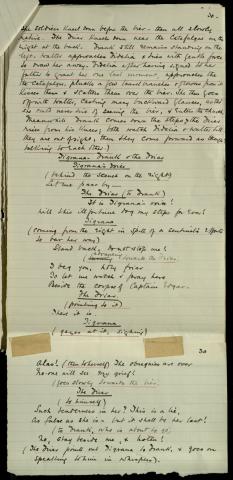 30.
The soldiers kneel down before the bier – then all slowly
retire. The Friar kneels down near the Catafalque on the
right at the back. Drunk still remains standing on the
left. Walter approaches Fidelia & tries with gentle force
to draw her away. Fidelia – after having signed to her
father to grant her one last moment, approaches the
the Catafalque, plucks a few laurel branches
kisses them & scatters them over the bier. She then goes
opposite Walter, casting many backward glances, as tho'
she could never tire of leaving the bier, & looks to
Meanwhile comes down the steps & the Friar
rises from his knees; both watch Fidelia & Walter till
they are out of sight, then they come forward as though
talking to each other)
Tigrana – & the Friar
Tigrana's voice.
(behind the scenes on the right)
Let me pass by –
The Friar (to )
It is Tigrana's voice!
Will this ill-fortune dog my steps for ever!
Tigrana
(coming from the right in spite of a sentinel's efforts
to bar her way)
Stand back, do not stop me!
(advancing towards the Friar)
I beg you, holy friar
To let me watch & pray here
Beside the corpse of Captain Edgar.
The Friar.
(pointing to it)
There it is.
Tigrana
(gazes at it, sighing)
30
Alas! (then to herself) The obsequies are over
No-one will see my grief!
(goes slowly towards the bier)
The Friar
(to himself)
Such tenderness in her! This is a lie,
As false as she is – but it shall be her last!
(to , who is about to go)
No, stay beside me, & listen!
(The Friar points out Tigrana to , & goes on
speaking to him in whispers).